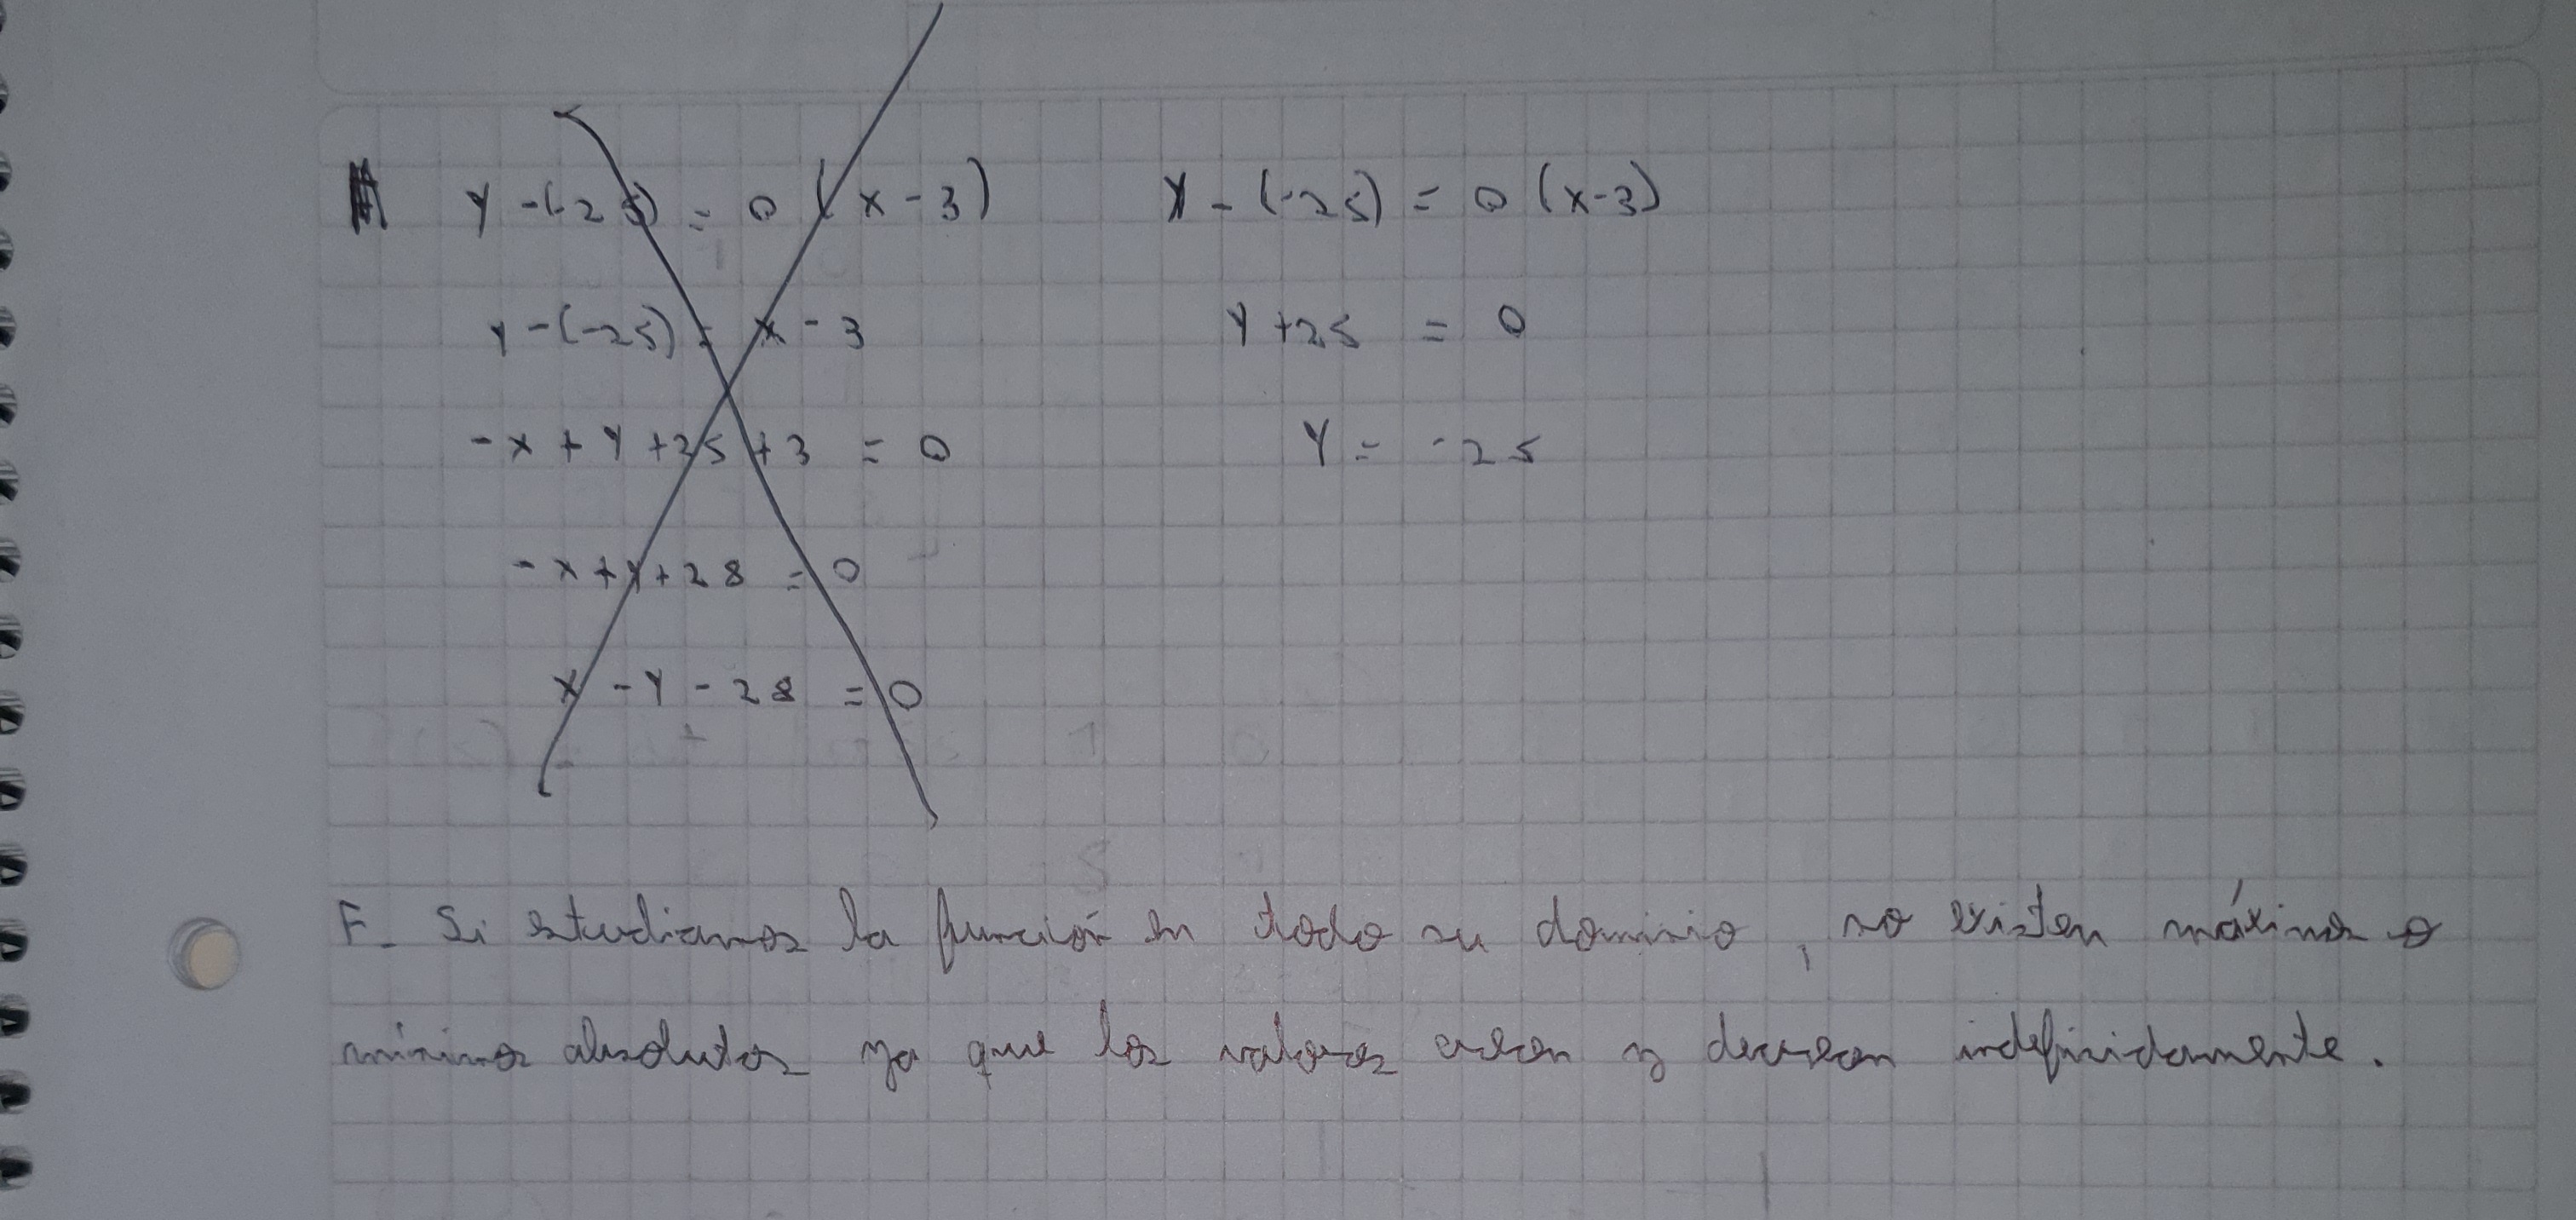 y -(-25) = 0 (x - 3)
y -(-25) = x - 3
-x + y +25 +3 = 0
-x +y+28 = 0
x - y - 28 = 0
y - (-25) = 0 (x-3)
y +25 = 0
y = -25
F. Si estudiamos la función en todo su dominio, no existen máximos o
mínimos absolutos ya que los valores crecen y decrecen indefinidamente.